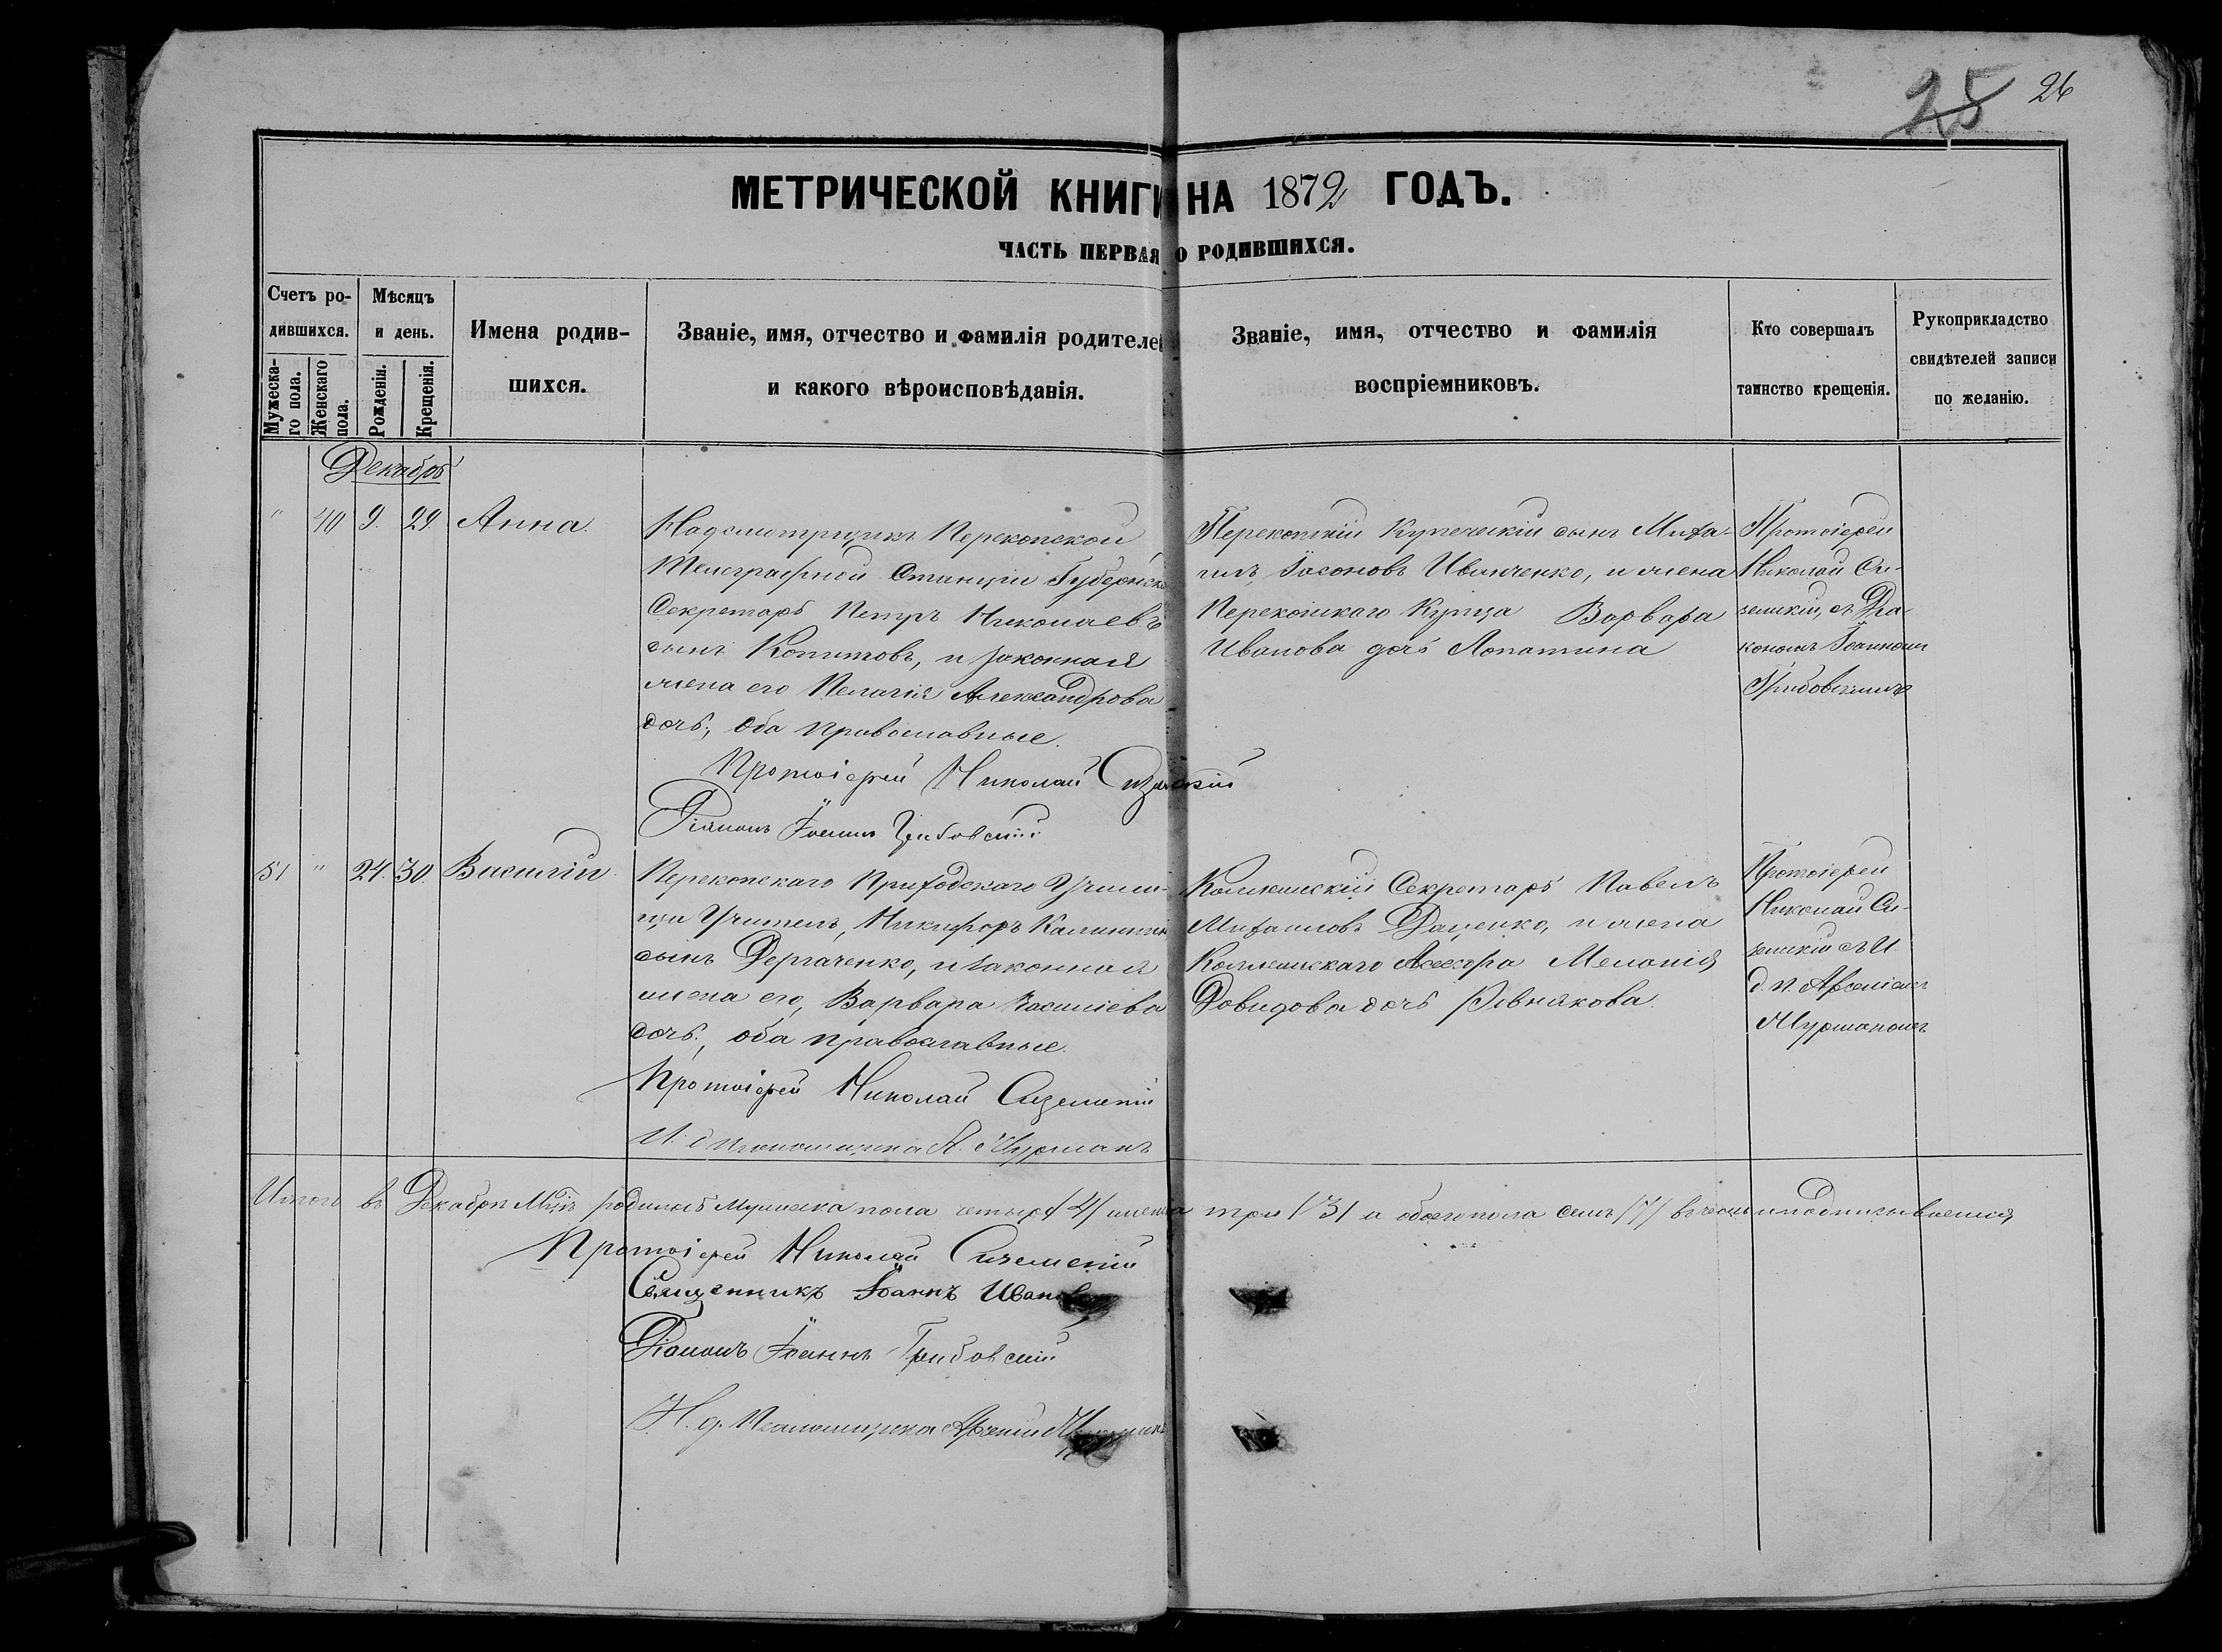 25 26
МЕТРИЧЕСКОЙ КНИГИ НА 1872 ГОДЪ.
ЧАСТЬ ПЕРВАЯ О РОДИВШИХСЯ.
Счетъ ро-
дившихся.
Мужеска-
го пола.
Женскаго
пола.
Мѣсяцъ
и день.
Рожденія.
Крещенія.
Имена родив-
шихся.
Званіе, имя, отчество и фамилія родителей
и какого вѣроисповѣданія.
Званіе, имя, отчество и фамилія
воспріемниковъ.
Кто совершалъ
таинство крещенія.
Рукоприкладство
свидѣтелей записи
по желанію.
Декабрь
" 40 9. 29. Анна.
Надсмотрщикъ Перекопской
Телеграфной Станціи Губернск
Секретарь Петръ Николаевъ
сынъ Копытовъ, и законная
жена его Пелагія Александрова
дочь, оба православные.
Протоіерей Николай Сиземскій
Діаконъ Іоаннъ Грибовскій
Перекопскій Купеческій сынъ Миха-
илъ Іасоновъ Иванченко, и жена
Перекопскаго Купца Варвара
Иванова дочь Лопатина
Протоіерей
Николай Си-
земскій, съ Діа-
кономъ Іоанномъ
Грибовскимъ
51 " 24. 30. Василій
Перекопскаго Приходскаго Учили-
ща Учитель, Никифоръ Калинин
сынъ Дергаченко, и законная
жена его, Варвара Василіева
дочь, оба православные.
Протоіерей Николай Сиземскій
И. д Псаломщика А. Мурманъ
Коллежскій Секретарь Павелъ
Михаиловъ Даценко, и жена
Коллежскаго Асесора Меланія
Довидова дочь Ривнякова.
Протоіерей
Николай Си-
земскій съ И.
д. п. Арсеніемъ
Мурманомъ
Итого въ Декабрѣ М-цѣ родилось Мужеска пола четыре /4/ женска три /3/ а обоего пола семь /7/ въ чемъ и подписываемся
Протоіерей Николай Сиземскій
Священникъ Іоаннъ Иванов
Діаконъ Іоаннъ Грибовскій
И. д. Псаломщика Арсеній Мурманъ